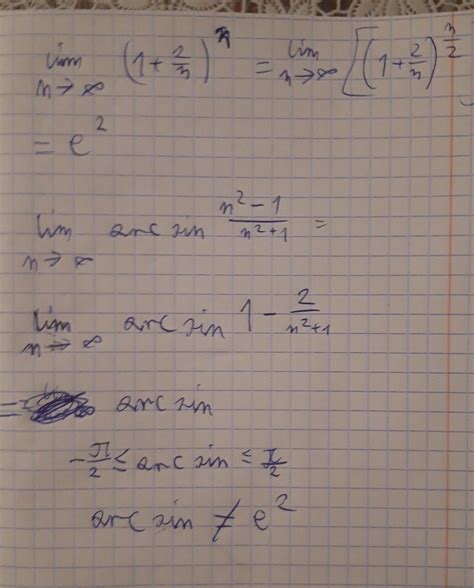 lim n→∞ (1 + 2/n)^n = lim n→∞ [(1 + 2/n)^n/2
= e^2
lim n→∞ arcsin n^2 - 1 / n^2 + 1 =
lim n→∞ arcsin 1 - 2 / n^2 + 1
= arcsin
-π/2 ≤ arcsin ≤ π/2
arcsin ≠ e^2